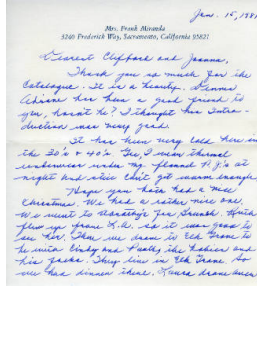 Jan. 15, 198
Mrs. Frank Miranda
3240 Frederick Way, Sacramento, California 95821
Dearest Clifford and Joanna,
Thank you so much for the
Catalogue. It is a beauty.
has been a good friend to
you, hasn't he? I thought his Intro-
duction was very good.
It has been very cold here in
the 30's & 40's. Gee, I wear thermal
underwear under my flannel P.J.'s at
night and still can't get warm enough.
Hope you both had a nice
Christmas. We had a rather nice one.
We went to Dorothy's for Brunch. Ruth
flew up from L.A. so it was good to
see her. Then we drove to Elk Grove to
be with Cindy and the babies and
his folks. They live in Elk Grove. So
we had dinner there. Laura drove over